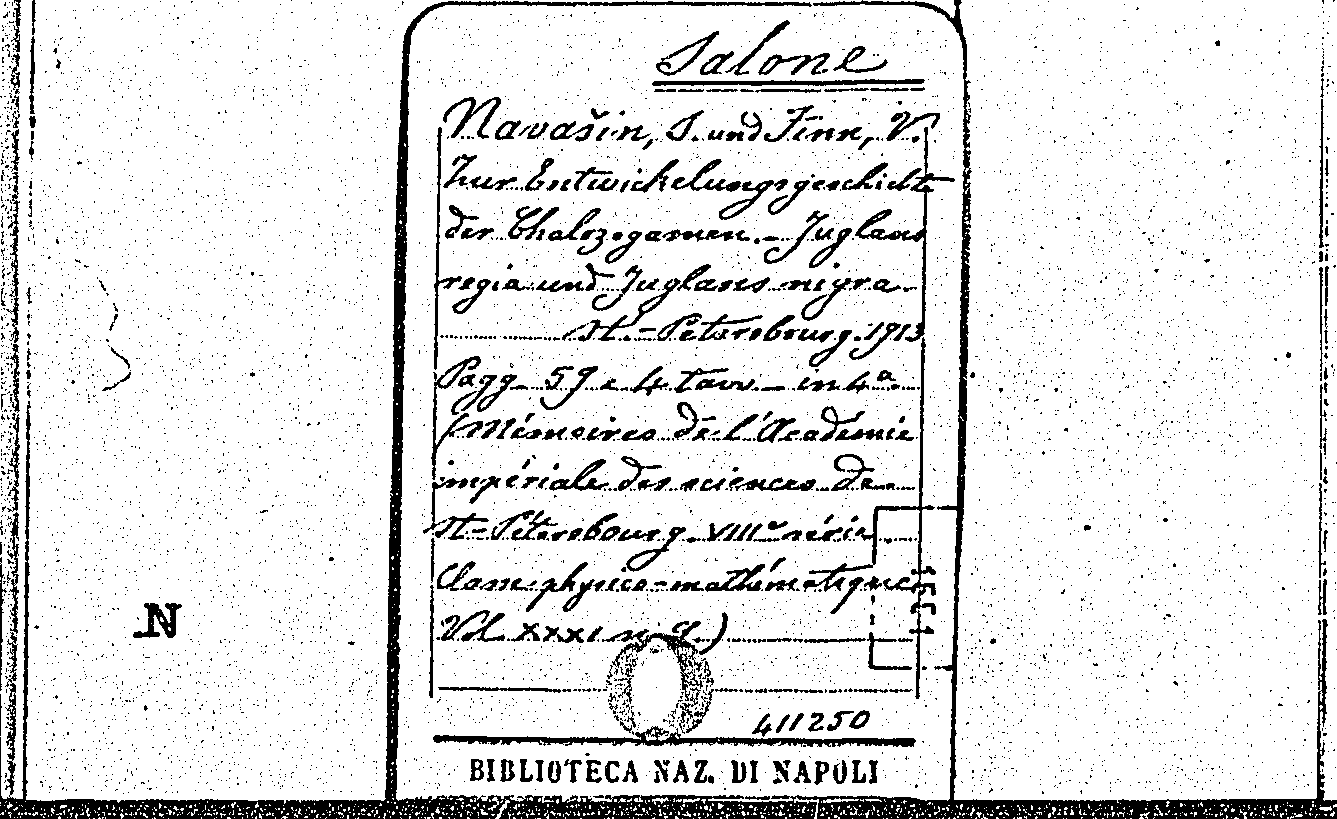 Salone
Navašin, S. und Finn, V.
Zur Entwickelungsgeschichte
der Chalazogamen. - Juglans
regia und Juglans nigra -
St.-Pétersbourg. 1913
Pagg. 59 e 4 tavv. - in 4ª
(Mémoires de l'Académie
impériale des sciences de
St-Pétersbourg. VIIIe série
Classe physico-mathématique
Vol. XXXI n. 9)
N
411250
BIBLIOTECA NAZ. DI NAPOLI